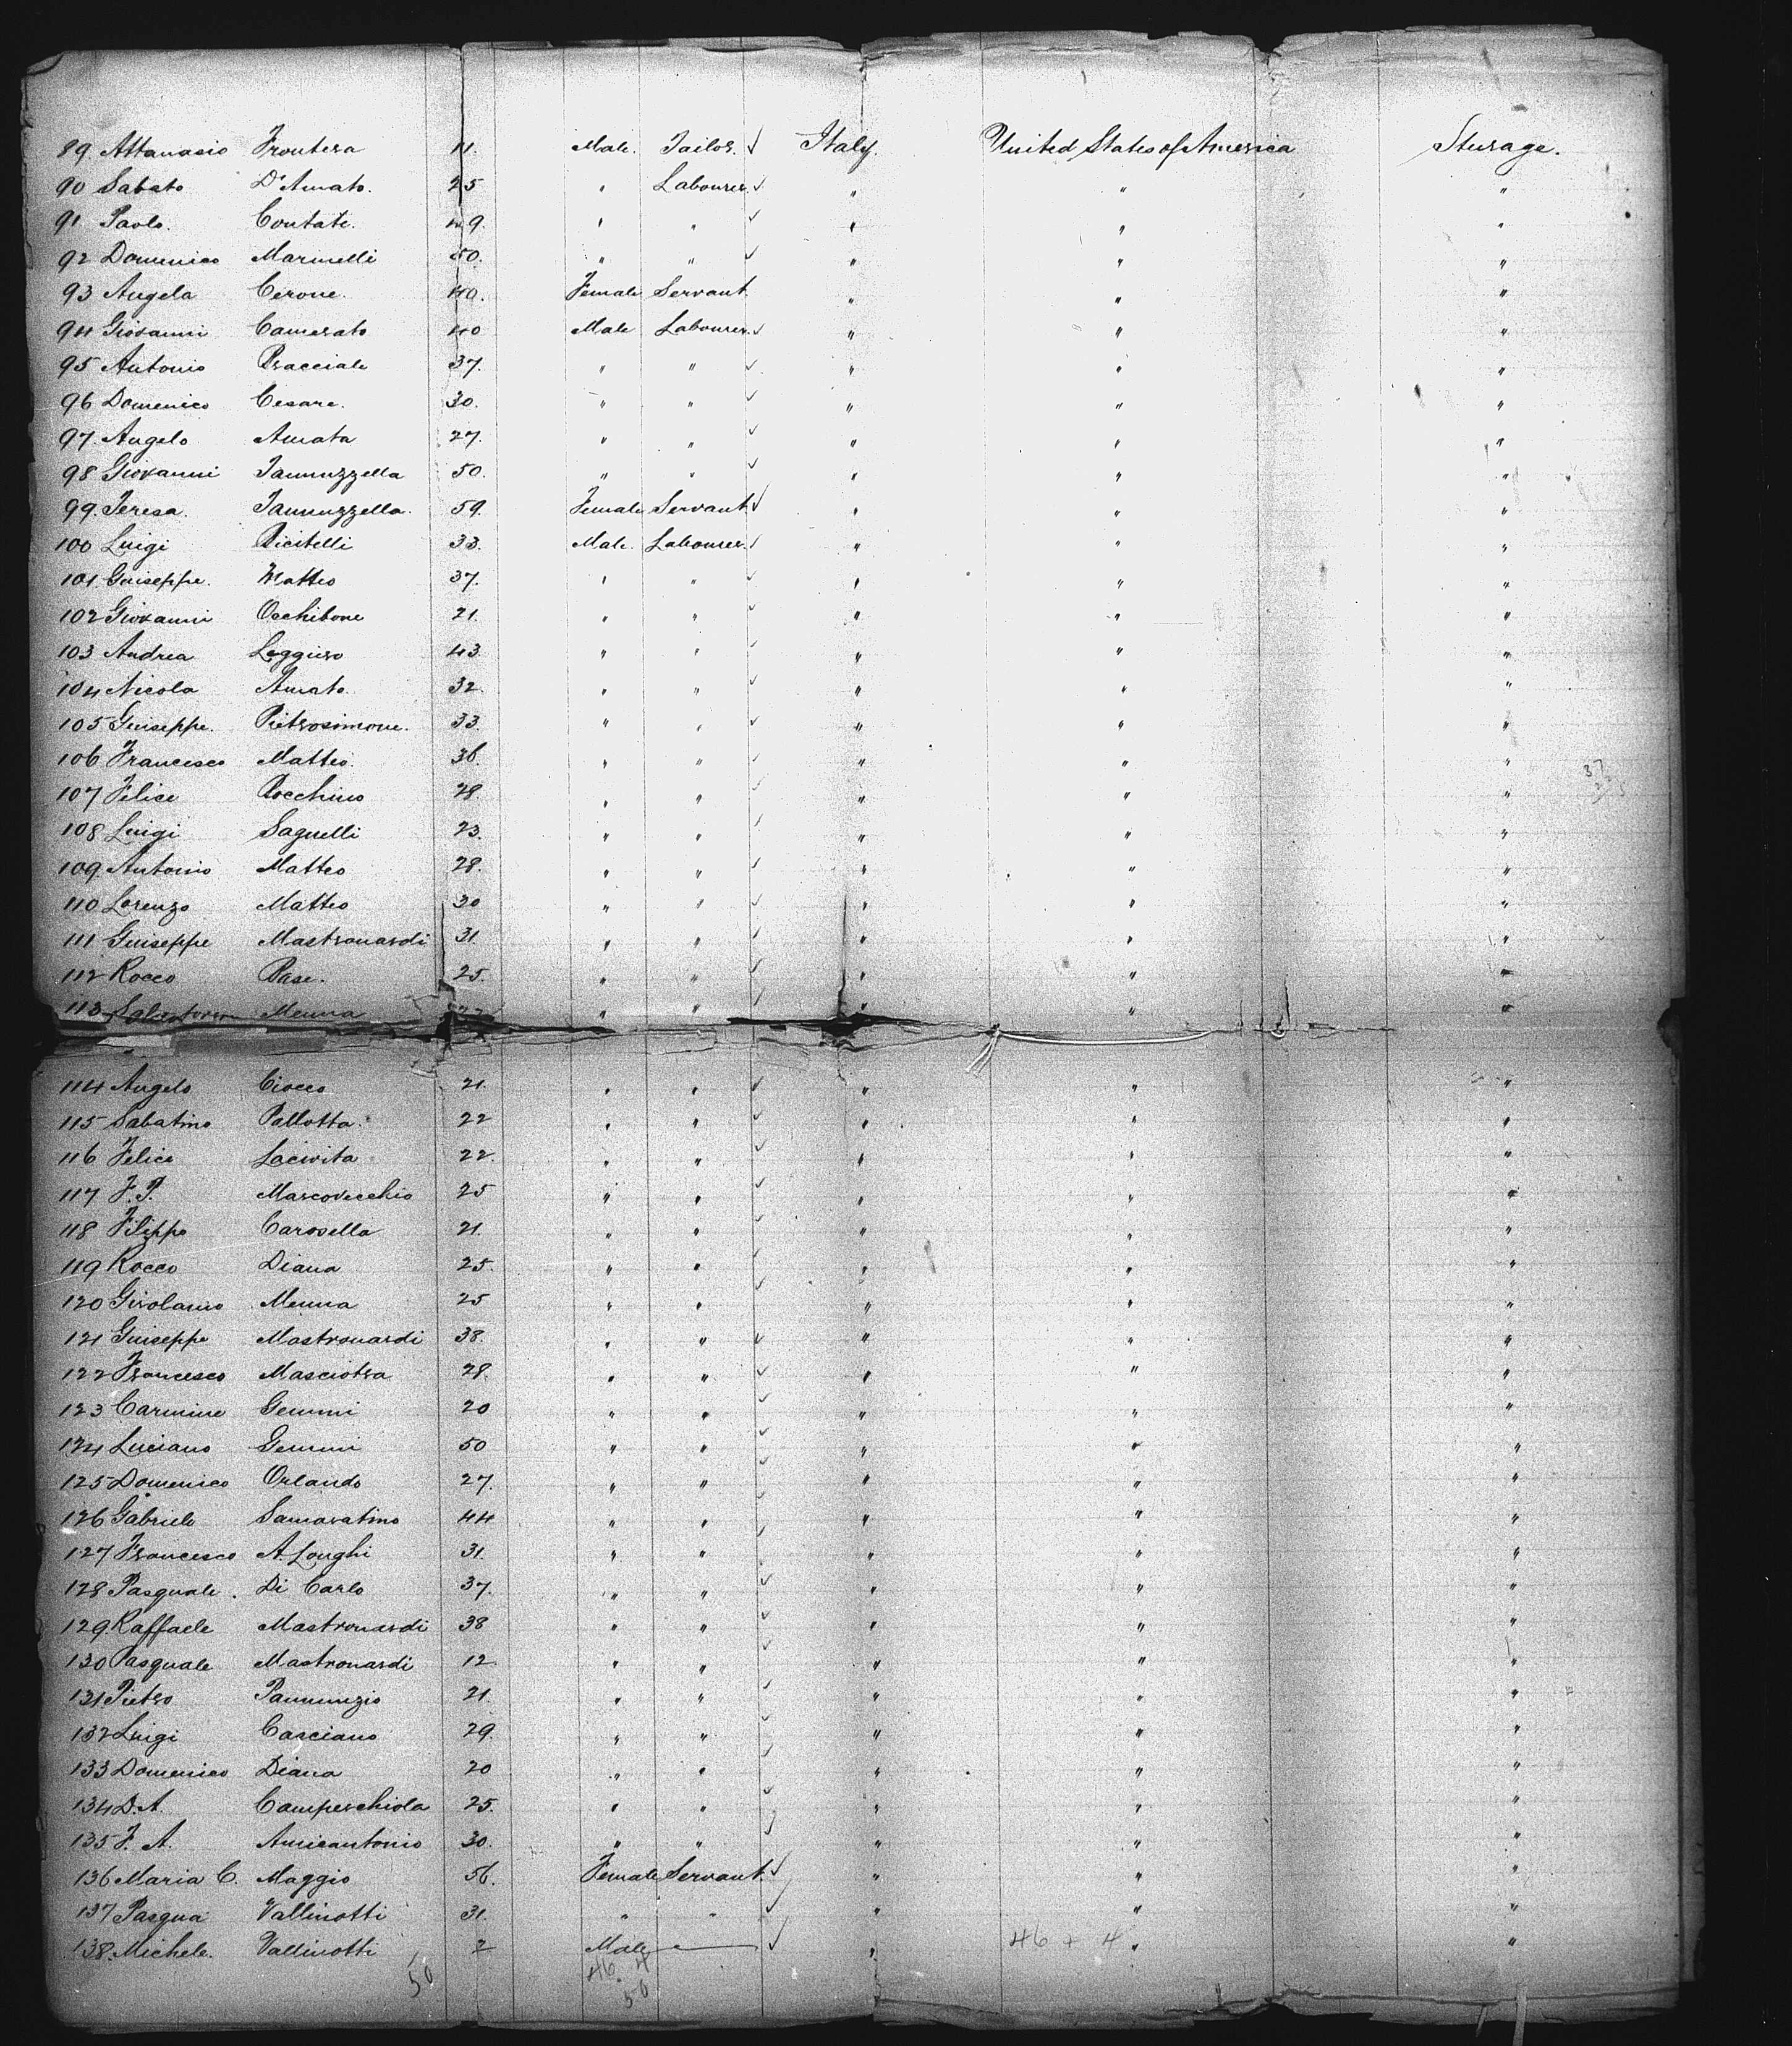 89. Attanasio Frontera 11. Male. Tailor. ✓ Italy. United States of America Steerage.
90 Sabato D'Amato. 25 " Labourer ✓ " " "
91 Paolo. Contate. 49. " " ✓ " " "
92 Domenico Marinelli 50. " " ✓ " " "
93 Angela Cerone. 40. Female Servant " " "
94 Giovanni Camerato 40 Male Labourer ✓ " " "
95 Antonio Bracciale 37. " " ✓ " " "
96 Domenico Cesare. 30. " " ✓ " " "
97. Angelo Amata 27. " " ✓ " " "
98 Giovanni Iannuzzella 50. " " ✓ " " "
99. Teresa. Iannuzzella. 59. Female Servant ✓ " " "
100 Luigi Picitelli 33. Male. Labourer. ✓ " " "
101. Guiseppe. Matteo 37. " " ✓ " " "
102 Giovanni Occhibone 21. " " ✓ " " "
103 Andrea Leggiero 43 " " ✓ " " "
104 Nicola Amato. 32. " " ✓ " " "
105 Guiseppe. Pietrosimone. 33. " " ✓ " " "
106 Francesco Matteo. 36. " " ✓ " " "
107 Felice Pocchino 28. " " ✓ " " "
108 Luigi Sagnelli 23. " " ✓ " " "
109. Antonio Matteo 28. " " ✓ " " "
110 Lorenzo Matteo 30 " " ✓ " " "
111 Guiseppe Mastronardi 31. " " ✓ " " "
112 Rocco Pase. 25. " " ✓ " " "
113 Menna " " ✓ " " "
114 Angelo Ciocco 21. " " ✓ " " "
115 Sabatino Pallotta. 22 " " ✓ " " "
116 Felice Lacivita 22. " " ✓ " " "
117 F. P. Marcovecchio 25 " " ✓ " " "
118 Filippo Carosella 21. " " ✓ " " "
119 Rocco Diana 25. " " ✓ " " "
120 Girolamo Menna 25 " " ✓ " " "
121 Guiseppe Mastronardi 38. " " ✓ " " "
122 Francesco Masciotra 28. " " ✓ " " "
123 Carmine Gemmi 20 " " ✓ " " "
124 Luciano Gemmi 50 " " ✓ " " "
125 Domenico Orlando 27. " " ✓ " " "
126 Gabriele Samaratino 44 " " ✓ " " "
127 Francesco A. Longhi 31. " " ✓ " " "
128 Pasquale. Di Carlo 37. " " ✓ " " "
129. Raffaele Mastronardi 38 " " ✓ " " "
130 Pasquale Mastronardi 12. " " ✓ " " "
131 Pietro Pannunzio 21. " " ✓ " " "
132 Luigi Casciano 29. " " ✓ " " "
133 Domenico Diana 20 " " ✓ " " "
134 D. A. Camperchiola 25. " " ✓ " " "
135 F. A. Amicantonio 30. " " ✓ " " "
136 Maria C. Maggio 56. Female Servant. ✓ " " "
137 Pasqua Vallinotti 31. " " ✓ " " "
138. Michele. Vallinotti 2 Male — ✓ " 46 + 4 " "
50 46. 4
50